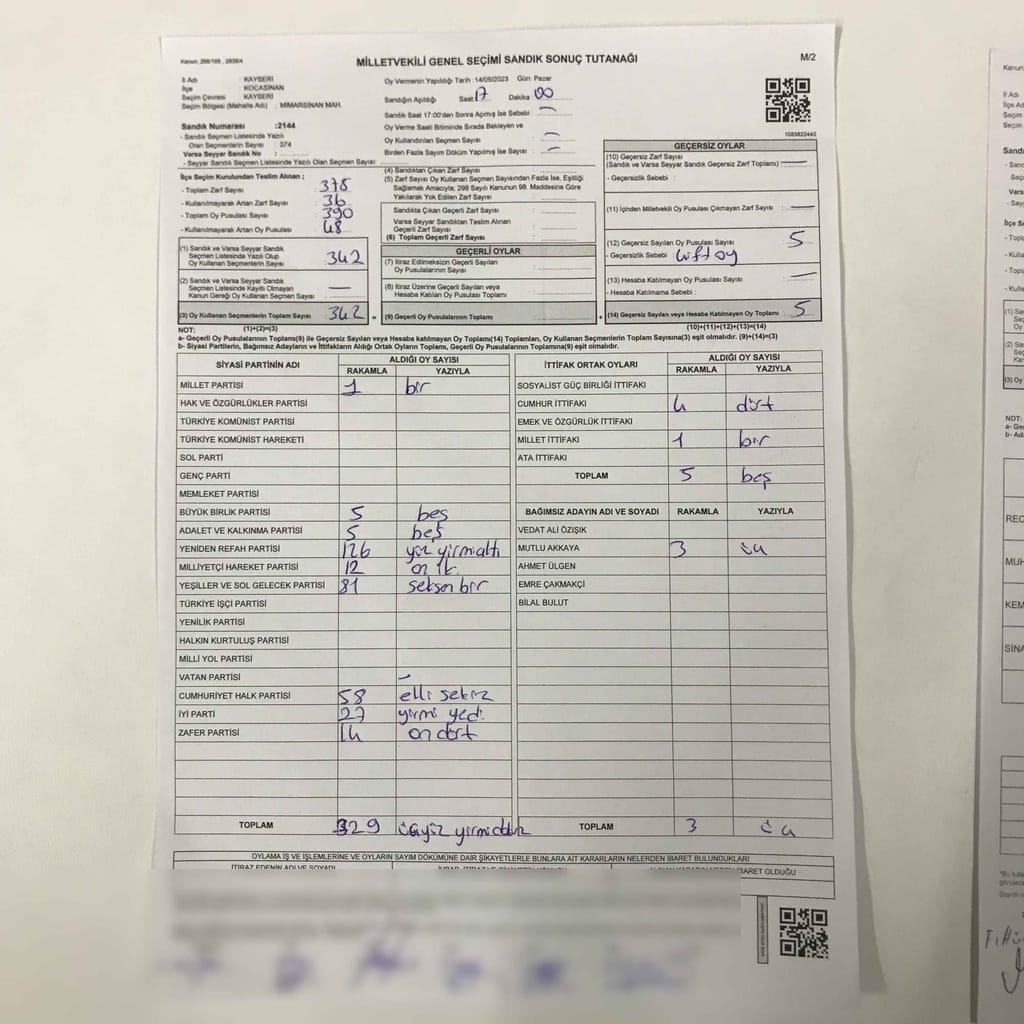 Kanun: 298/105 , 2839/4
MİLLETVEKİLİ GENEL SEÇİMİ SANDIK SONUÇ TUTANAĞI
M/2
İl Adı KAYSERİ
İlçe KOCASİNAN
Seçim Çevresi KAYSERİ
Seçim Bölgesi (Mahalle Adı) : MİMARSİNAN MAH.
Oy Vermenin Yapıldığı Tarih : 14/05/2023 Gün: Pazar
Sandığın Açıldığı Saat 17 Dakika 00
Sandık Saat 17:00'den Sonra Açılmış İse Sebebi
Oy Verme Saati Bitiminde Sırada Bekleyen ve
Oy Kullandırılan Seçmen Sayısı
Birden Fazla Sayım Döküm Yapılmış İse Sayısı
1083822445
Sandık Numarası :2144
- Sandık Seçmen Listesinde Yazılı
Olan Seçmenlerin Sayısı : 374
Varsa Seyyar Sandık No :
- Seyyar Sandık Seçmen Listesinde Yazılı Olan Seçmen Sayısı:
İlçe Seçim Kurulundan Teslim Alınan ;
- Toplam Zarf Sayısı : 378
- Kullanılmayarak Artan Zarf Sayısı : 36
- Toplam Oy Pusulası Sayısı : 390
- Kullanılmayarak Artan Oy Pusulası : 48
(1) Sandık ve Varsa Seyyar Sandık
Seçmen Listesinde Yazılı Olup
Oy Kullanan Seçmenlerin Sayısı : 342
(2) Sandık ve Varsa Seyyar Sandık
Seçmen Listesinde Kayıtlı Olmayan
Kanun Gereği Oy Kullanan Seçmen Sayısı : —
(3) Oy Kullanan Seçmenlerin Toplam Sayısı : 342 =
(4) Sandıktan Çıkan Zarf Sayısı :
(5) Zarf Sayısı Oy Kullanan Seçmen Sayısından Fazla İse, Eşitliği
Sağlamak Amacıyla; 298 Sayılı Kanunun 98. Maddesine Göre
Yakılarak Yok Edilen Zarf Sayısı :
Sandıkta Çıkan Geçerli Zarf Sayısı :
Varsa Seyyar Sandıktan Teslim Alınan
Geçerli Zarf Sayısı :
(6) Toplam Geçerli Zarf Sayısı :
GEÇERLİ OYLAR
(7) İtiraz Edilmeksizin Geçerli Sayılan
Oy Pusulalarının Sayısı :
(8) İtiraz Üzerine Geçerli Sayılan veya
Hesaba Katılan Oy Pusulası Toplamı :
(9) Geçerli Oy Pusulalarının Toplamı : +
GEÇERSİZ OYLAR
(10) Geçersiz Zarf Sayısı
(Sandık ve Varsa Seyyar Sandık Geçersiz Zarf Toplamı) : —
- Geçersizlik Sebebi :
(11) İçinden Milletvekili Oy Pusulası Çıkmayan Zarf Sayısı : —
(12) Geçersiz Sayılan Oy Pusulası Sayısı : 5
- Geçersizlik Sebebi : çift oy
(13) Hesaba Katılmayan Oy Pusulası Sayısı : —
- Hesaba Katılmama Sebebi :
(14) Geçersiz Sayılan veya Hesaba Katılmayan Oy Toplamı : 5
NOT: (1)+(2)=(3) (10)+(11)+(12)+(13)=(14)
a- Geçerli Oy Pusulalarının Toplamı(9) ile Geçersiz Sayılan veya Hesaba katılmayan Oy Toplamı(14) Toplamları, Oy Kullanan Seçmenlerin Toplam Sayısına(3) eşit olmalıdır. (9)+(14)=(3)
b- Siyasi Partilerin, Bağımsız Adayların ve İttifakların Aldığı Ortak Oyların Toplamı, Geçerli Oy Pusulalarının Toplamına(9) eşit olmalıdır.
SİYASİ PARTİNİN ADI ALDIĞI OY SAYISI
RAKAMLA YAZIYLA
MİLLET PARTİSİ 1 bir
HAK VE ÖZGÜRLÜKLER PARTİSİ
TÜRKİYE KOMÜNİST PARTİSİ
TÜRKİYE KOMÜNİST HAREKETİ
SOL PARTİ
GENÇ PARTİ
MEMLEKET PARTİSİ
BÜYÜK BİRLİK PARTİSİ 5 beş
ADALET VE KALKINMA PARTİSİ 5 beş
YENİDEN REFAH PARTİSİ 126 yüz yirmialtı
MİLLİYETÇİ HAREKET PARTİSİ 12 on iki
YEŞİLLER VE SOL GELECEK PARTİSİ 81 seksen bir
TÜRKİYE İŞÇİ PARTİSİ
YENİLİK PARTİSİ
HALKIN KURTULUŞ PARTİSİ
MİLLİ YOL PARTİSİ
VATAN PARTİSİ –
CUMHURİYET HALK PARTİSİ 58 elli sekiz
İYİ PARTİ 27 yirmi yedi
ZAFER PARTİSİ 14 on dört
TOPLAM 329 üçyüz yirmidokuz
İTTİFAK ORTAK OYLARI ALDIĞI OY SAYISI
RAKAMLA YAZIYLA
SOSYALİST GÜÇ BİRLİĞİ İTTİFAKI
CUMHUR İTTİFAKI 4 dört
EMEK VE ÖZGÜRLÜK İTTİFAKI
MİLLET İTTİFAKI 1 bir
ATA İTTİFAKI
TOPLAM 5 beş
BAĞIMSIZ ADAYIN ADI VE SOYADI RAKAMLA YAZIYLA
VEDAT ALİ ÖZIŞIK
MUTLU AKKAYA 3 üç
AHMET ÜLGEN
EMRE ÇAKMAKÇİ
BİLAL BULUT
TOPLAM 3 üç
OYLAMA İŞ VE İŞLEMLERİNE VE OYLARIN SAYIM DÖKÜMÜNE DAİR ŞİKAYETLERLE BUNLARA AİT KARARLARIN NELERDEN İBARET BULUNDUKLARI
İTİRAZ EDENİN ADI VE SOYADI
İBARET OLDUĞU
Kanun:
İl Adı
İlçe
Seçim
Seçim
REC
MUH
KEM
SİNA